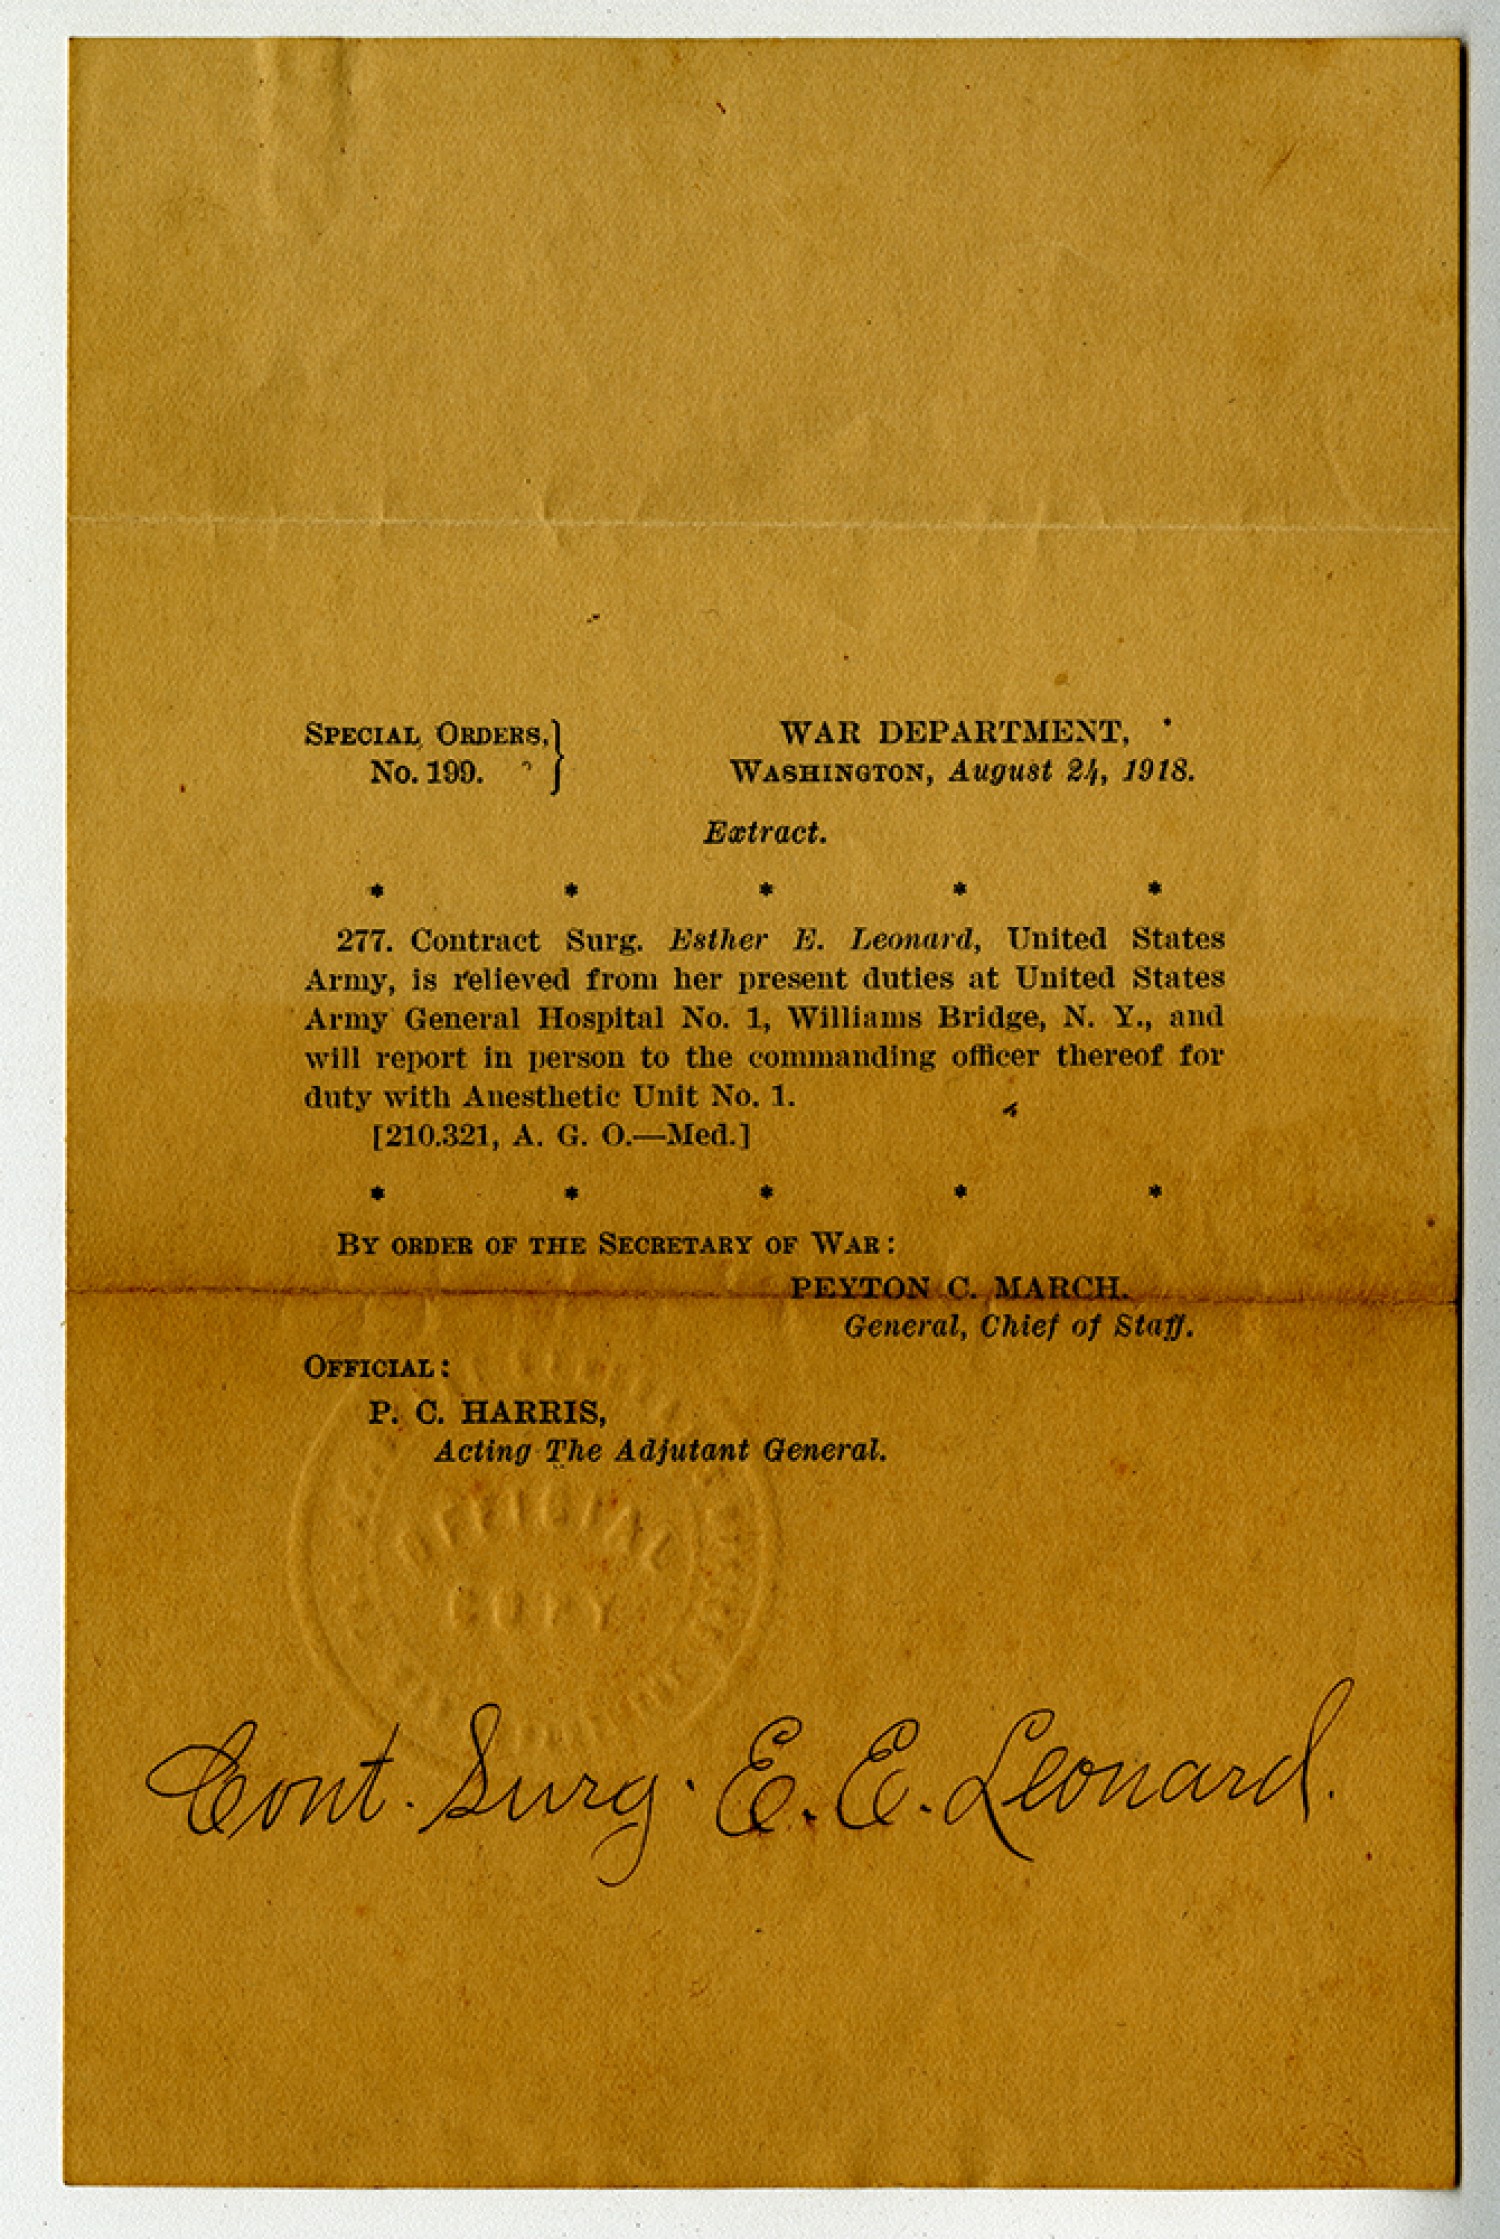 SPECIAL ORDERS,}
No. 199.
WAR DEPARTMENT,
WASHINGTON, August 24, 1918.
Extract.
* * * * *
277. Contract Surg. Esther E. Leonard, United States
Army, is relieved from her present duties at United States
Army General Hospital No. 1, Williams Bridge, N. Y., and
will report in person to the commanding officer thereof for
duty with Anesthetic Unit No. 1.
[210.321, A. G. O.—Med.]
* * * * *
BY ORDER OF THE SECRETARY OF WAR:
PEYTON C. MARCH.
General, Chief of Staff.
OFFICIAL:
P. C. HARRIS,
Acting The Adjutant General.
OFFICIAL
COPY
Cont. Surg. E. E. Leonard.